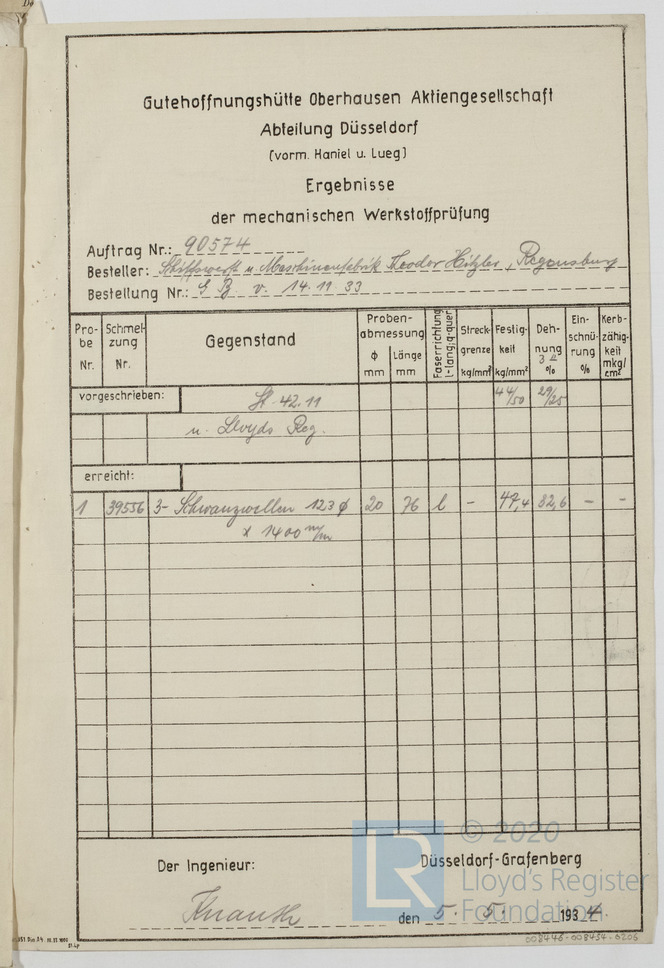 Gutehoffnungshütte Oberhausen Aktiengesellschaft
Abteilung Düsseldorf
(vorm. Haniel u. Lueg)
Ergebnisse
der mechanischen Werkstoffprüfung
Auftrag Nr.: 90574
Besteller: Schiffswerft u. Maschinenfabrik Theodor Hitzler, Regensburg
Bestellung Nr.: G B v. 14.11.33
Pro-be Nr. Schmel-zung Nr. Gegenstand Proben-abmessung ϕ mm Länge mm Faserrichtung l-lang;q-quer Streck-grenze kg/mm² Festig-keit kg/mm² Deh-nung % Ein-schnü-rung % Kerb-zähig-keit mkg/cm²
vorgeschrieben: St. 42.11 44/50 29/25
u. Lloyds Reg.
erreicht:
1 39556 3- Schwanzwellen 123 ϕ 20 76 l - 47,4 32,6 - -
x 1400 m/m
Der Ingenieur: Düsseldorf-Grafenberg
Knauth
den 5. 5. 1934.
LR © 2020
Lloyd's Register
Foundation
008446-008454-0206